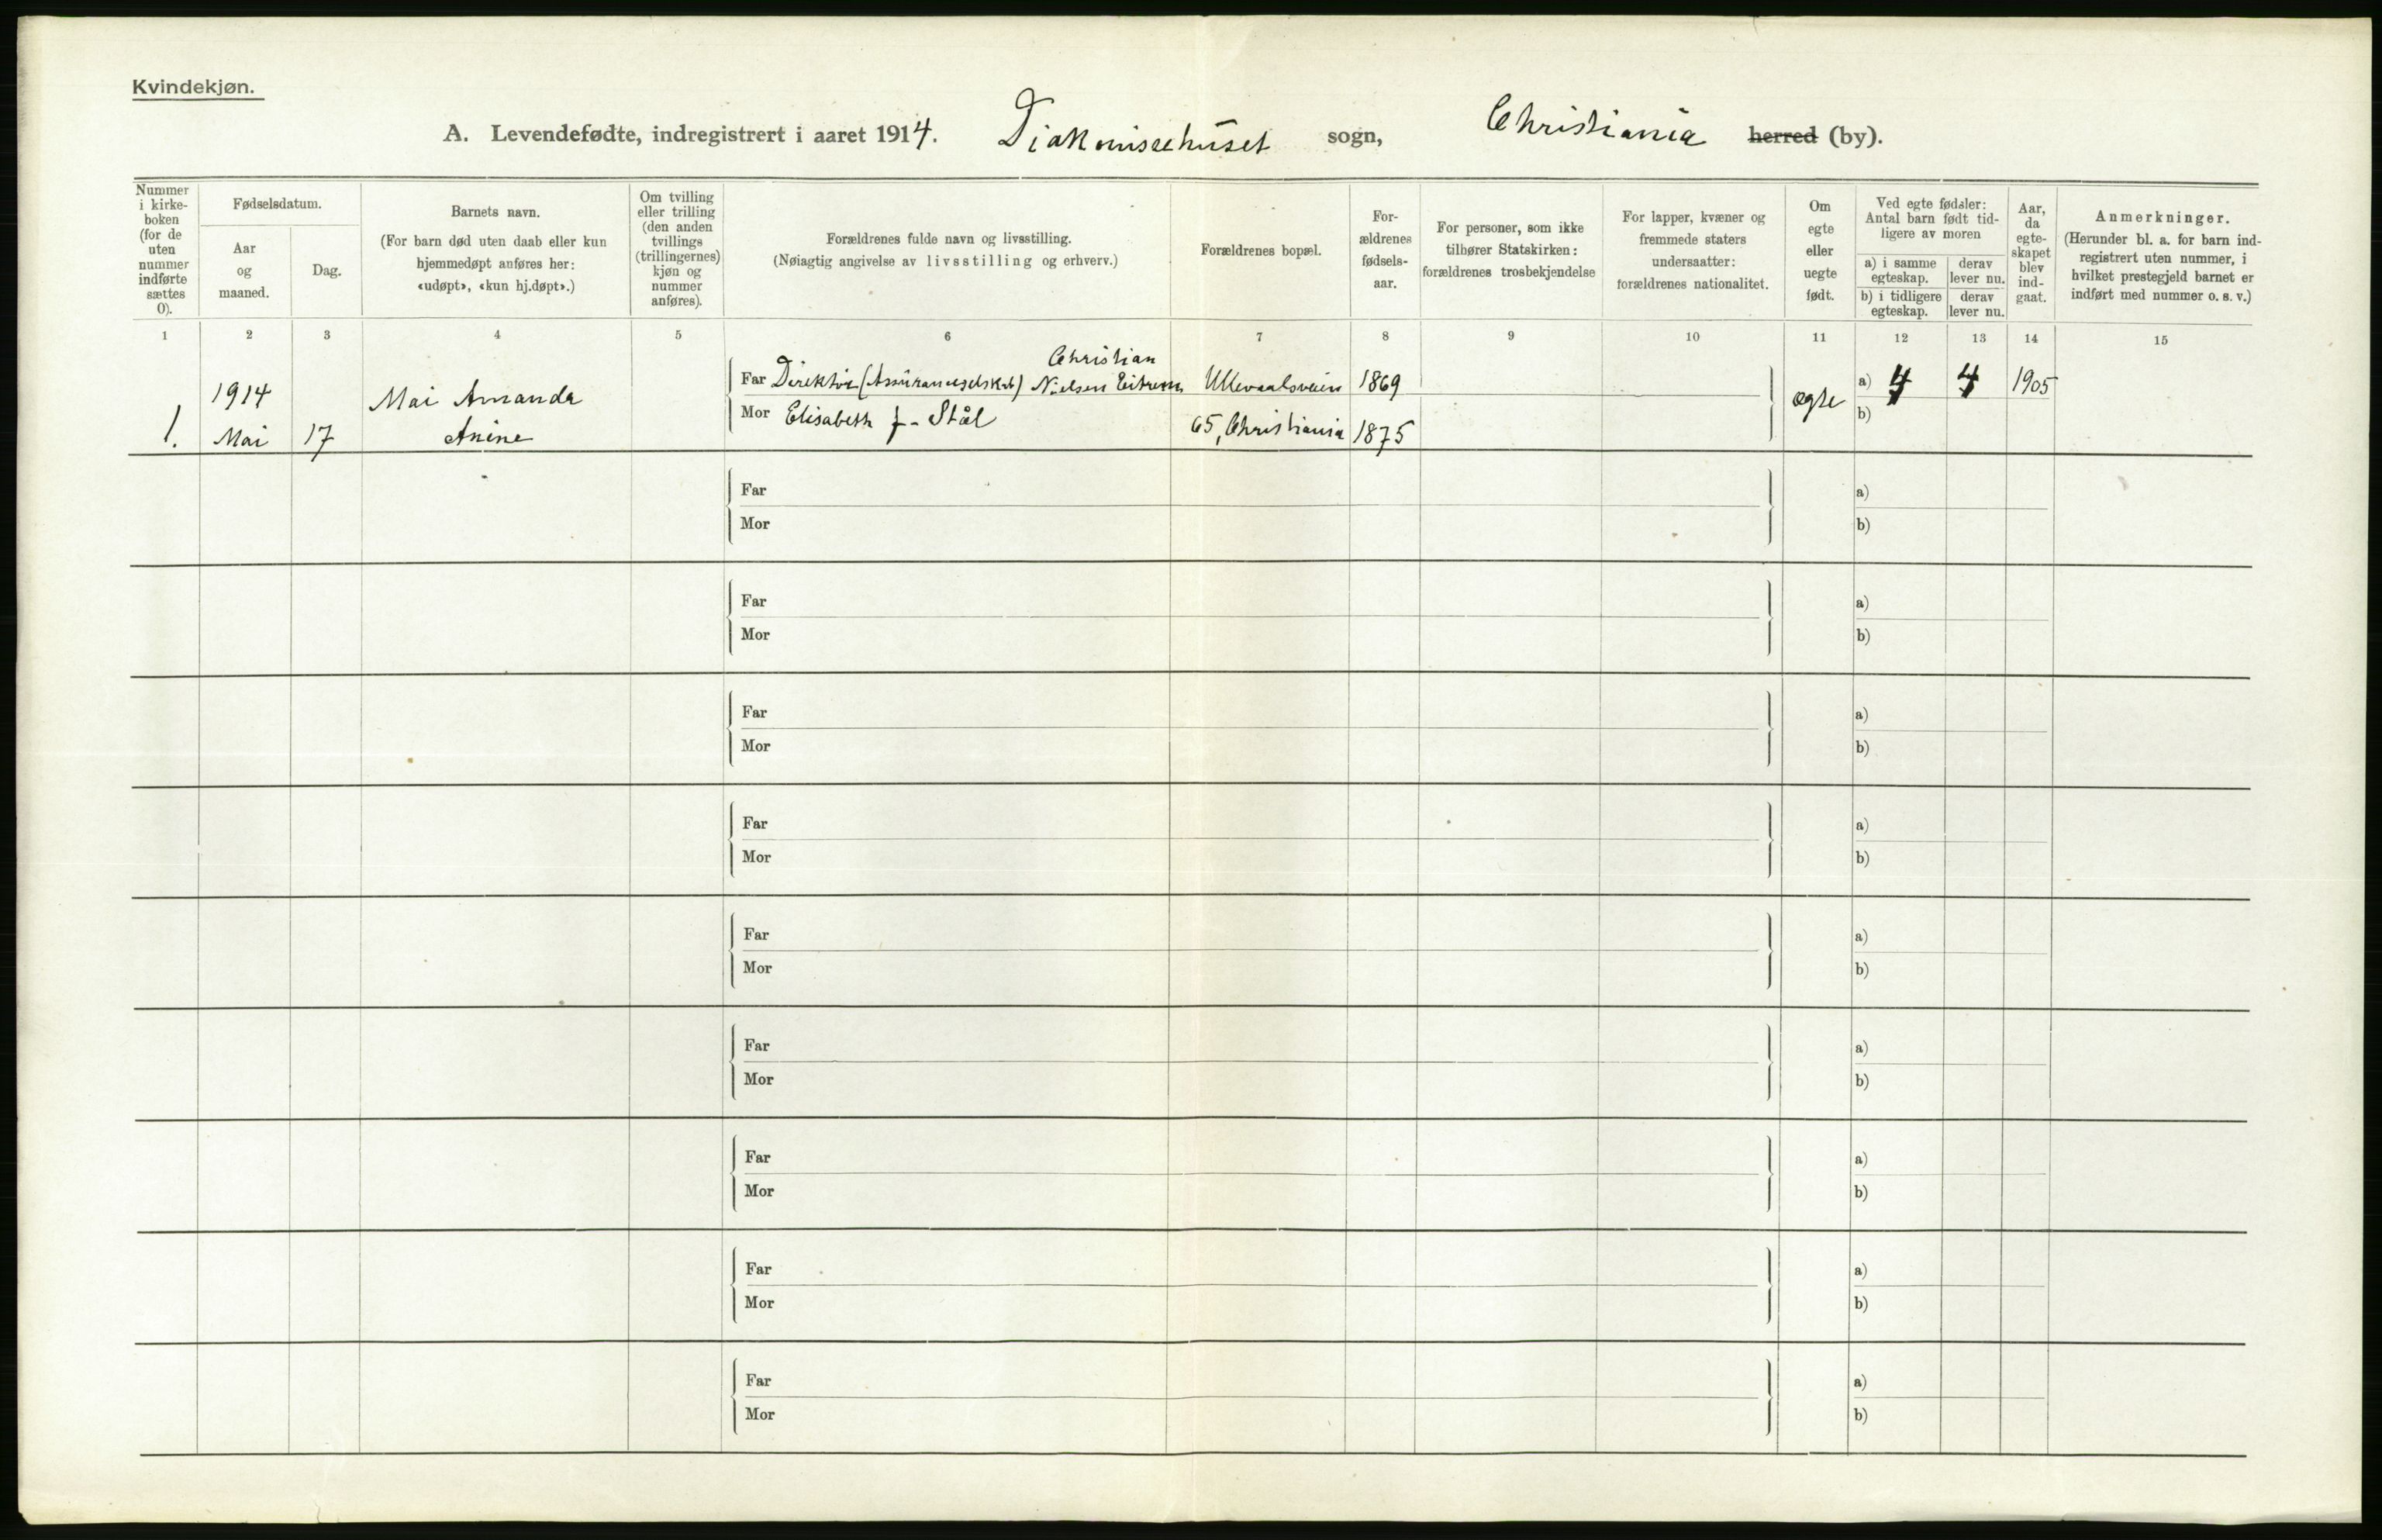 Kvindekjøn.
A. Levendefødte, indregistrert i aaret 1914. Diakonissehuset sogn, Christiania herred (by).
Nummer
i kirke-
boken
(for de
uten
nummer
indførte
sættes
0).
Fødselsdatum.
Aar
og
maaned.
Dag.
Barnets navn.
(For barn død uten daab eller kun
hjemmedøpt anføres her:
«udøpt», «kun hj.døpt».)
Om tvilling
eller trilling
(den anden
tvillings
(trillingernes)
kjøn og
nummer
anføres).
Forældrenes fulde navn og livsstilling.
(Nøiagtig angivelse av livsstilling og erhverv.)
Forældrenes bopæl.
For-
ældrenes
fødsels-
aar.
For personer, som ikke
tilhører Statskirken:
forældrenes trosbekjendelse
For lapper, kvæner og
fremmede staters
undersaatter:
forældrenes nationalitet.
Om
egte
eller
uegte
født.
Ved egte fødsler:
Antal barn født tid-
ligere av moren
a) i samme
egteskap.
derav
lever nu.
b) i tidligere
egteskap.
derav
lever nu.
Aar,
da
egte-
skapet
blev
ind-
gaat.
Anmerkninger.
(Herunder bl. a. for barn ind-
registrert uten nummer, i
hvilket prestegjeld barnet er
indført med nummer o. s. v.)
1 2 3 4 5 6 7 8 9 10 11 12 13 14 15
Christian
1914 Mai Amanda Far Direktør (Assuranceselskab) Nielsen Eitrem Ullevaalsveien 1869 ægte a) 4 4 1905
1. Mai 17 Anine Mor Elisabeth f. Stål 65, Christiania 1875 b)
Far a)
Mor b)
Far a)
Mor b)
Far a)
Mor b)
Far a)
Mor b)
Far a)
Mor b)
Far a)
Mor b)
Far a)
Mor b)
Far a)
Mor b)
Far a)
Mor b)